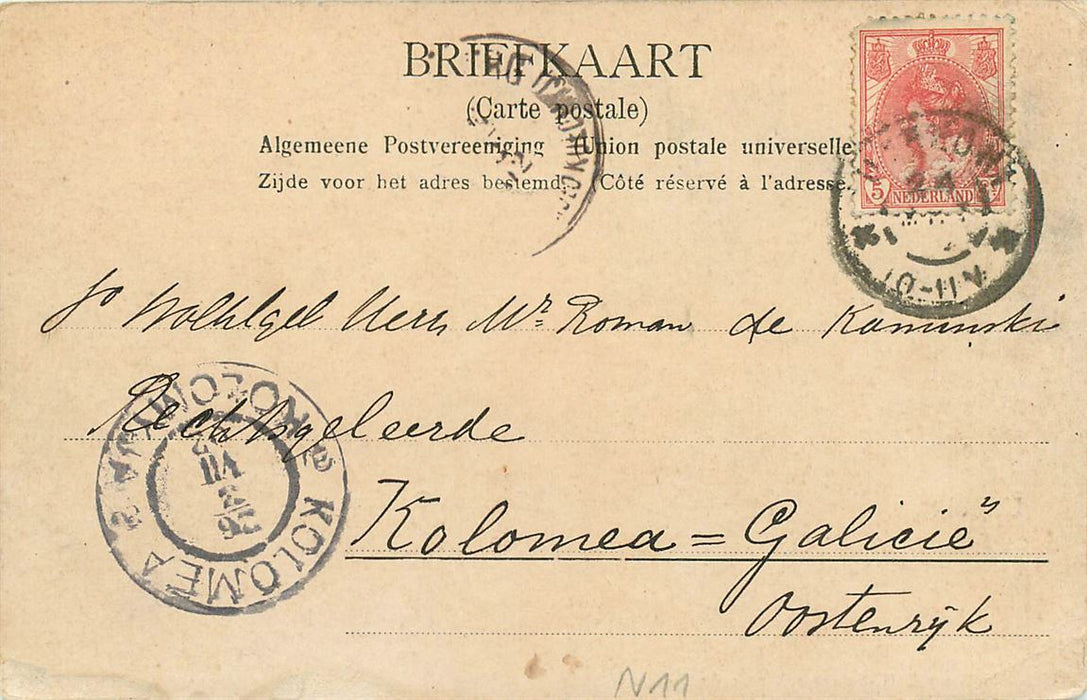 BRIEFKAART
(Carte postale)
Algemeene Postvereeniging (Union postale universelle
Zijde voor het adres bestemd. (Côté réservé à l'adresse.
5 NEDERLAND
Heer Mr. Roman de Kaminski
Rechtsgeleerde
Kolomea = Galicië
Oostenrijk
KOLOMEA KOŁOMYJA
VII
N11